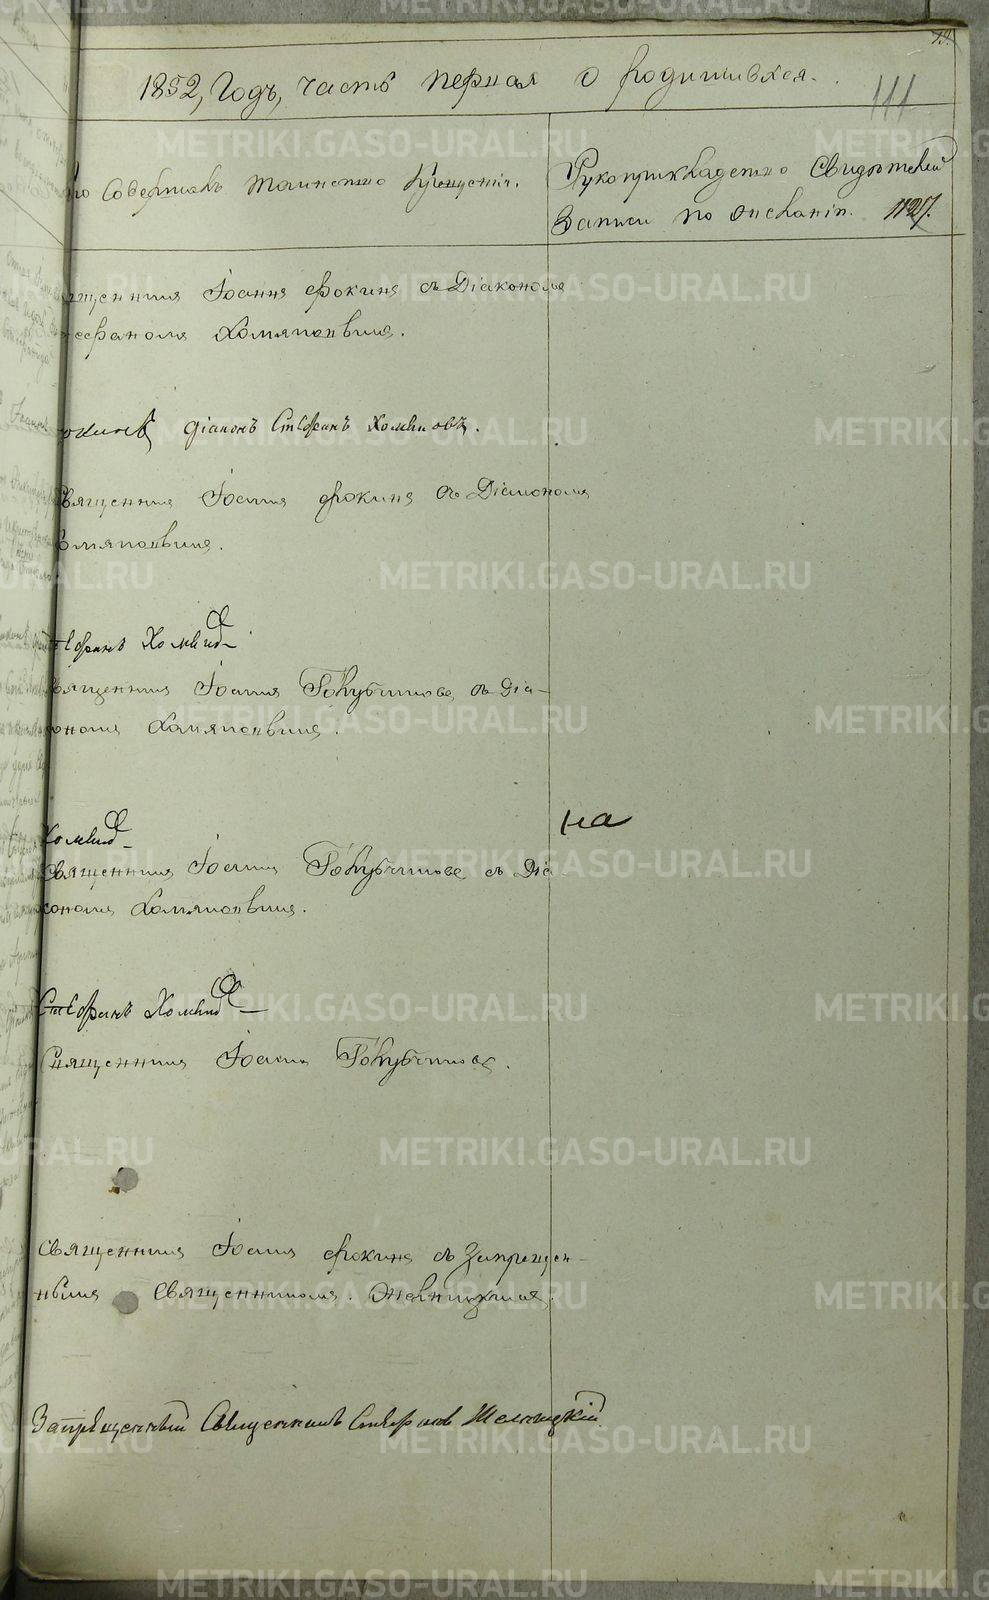 1852, Годъ, часть первая о родившихся.
111
Кто Совершалъ таинство Крещенія.
Рукоприкладство Свидѣтелей
Записи по желанію. 1127.
Священникъ Іоаннъ Фокинъ съ Діакономъ
Стефаномъ Хомяковымъ.
Фокинъ, діаконъ Стефанъ Хомяковъ.
Священникъ Іоаннъ Фокинъ съ Діакономъ
Хомяковымъ.
Стефанъ Хомяков
Священникъ Іоаннъ Голубчиковъ съ Діа-
кономъ Хомяковымъ.
на
Хомяков
Священникъ Іоаннъ Голубчиковъ съ Діа
кономъ Хомяковымъ.
Стефанъ Хомяков
Священникъ Іоаннъ Голубчиковъ.
Священникъ Іоаннъ Фокинъ съ Запрещен-
нымъ Священникомъ
Запрещенный Священникъ Стефанъ
METRIKI.GASO-URAL.RU